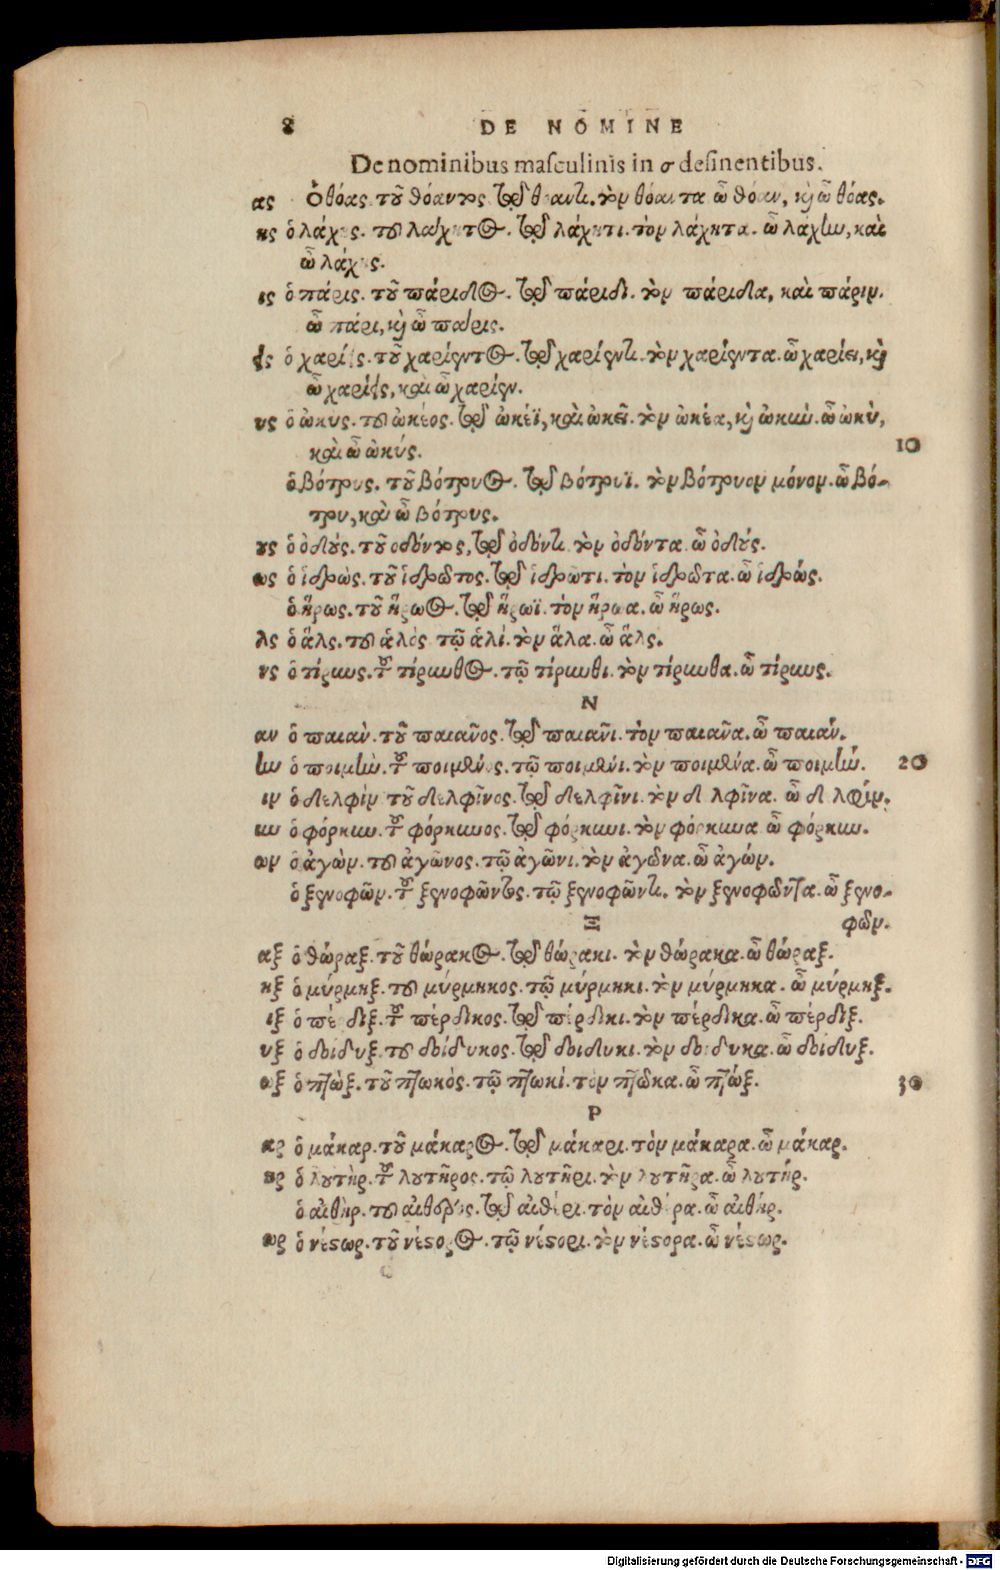 8 DE NOMINE
De nominibus masculinis in σ desinentibus.
ας Ὁ θόας. τοῦ θόαντος. τῷ θόαντι. τὸν θόαντα. ὦ θόαν, κỳ ὦ θόας.
ης ὁ λάχης. τοῦ λάχητος. τῷ λάχητι. τὸν λάχητα. ὦ λάχην, καὶ
ὦ λάχης.
ις ὁ πάρις. τοῦ πάριδος. τῷ πάριδι. τὸν πάριδα, καὶ πάριν.
ὦ πάρι, κỳ ὦ πάρις.
εις ὁ χαρίεις. τοῦ χαρίεντος. τῷ χαρίεντι. τὸν χαρίεντα. ὦ χαρίει, κỳ
ὦ χαρίεις, καὶ ὦ χαρίεν.
υς ὁ ὠκὺς. τοῦ ὠκέος. τῷ ὠκέϊ, καὶ ὠκεῖ. τὸν ὠκέα, κỳ ὠκὺν. ὦ ὠκὺ,
καὶ ὦ ὠκύς. 10
ὁ βότρυς. τοῦ βότρυος. τῷ βότρυϊ. τὸν βότρυον μόνον. ὦ βό-
τρυ, καὶ ὦ βότρυς.
ους ὁ ὀδούς. τοῦ οδόντος, τῷ ὀδόντι. τὸν ὀδόντα. ὦ ὀδούς.
ως ὁ ἱδρὼς. τοῦ ἱδρῶτος. τῷ ἱδρῶτι. τὸν ἱδρῶτα. ὦ ἱδρώς.
ὁ ἥρως. τοῦ ἥρωος. τῷ ἥρωϊ. τὸν ἥρωα. ὦ ἥρως.
λς ὁ ἅλς. τοῦ ἁλὸς. τῷ ἁλί. τὸν ἅλα. ὦ ἅλς.
νς ὁ τίρυνς. τοῦ τίρυνθος. τῷ τίρυνθι. τὸν τίρυνθα. ὦ τίρυνς.
Ν
αν ὁ παιὰν. τοῦ παιᾶνος. τῷ παιᾶνι. τὸν παιᾶνα. ὦ παιάν.
ην ὁ ποιμὴν. τοῦ ποιμένος. τῷ ποιμένι. τὸν ποιμένα. ὦ ποιμήν. 20
ιν ὁ δελφὶν. τοῦ δελφῖνος. τῷ δελφῖνι. τὸν δελφῖνα. ὦ δελφίν.
υν ὁ φόρκυν. τοῦ φόρκυνος. τῷ φόρκυνι. τὸν φόρκυνα. ὦ φόρκυν.
ων ὁ ἀγὼν. τοῦ ἀγῶνος. τῷ ἀγῶνι. τὸν ἀγῶνα. ὦ ἀγών.
ὁ ξενοφῶν. τοῦ ξενοφῶντος. τῷ ξενοφῶντι. τὸν ξενοφῶντα. ὦ ξενο-
Ξ φῶν.
αξ ὁ θώραξ. τοῦ θώρακος. τῷ θώρακι. τὸν θώρακα. ὦ θώραξ.
ηξ ὁ μύρμηξ. τοῦ μύρμηκος. τῷ μύρμηκι. τὸν μύρμηκα. ὦ μύρμηξ.
ιξ ὁ πέρδιξ. τοῦ πέρδικος. τῷ πέρδικι. τὸν πέρδικα. ὦ πέρδιξ.
υξ ὁ δοίδυξ. τοῦ δοίδυκος. τῷ δοίδυκι. τὸν δοίδυκα. ὦ δοίδυξ.
ωξ ὁ πτὼξ. τοῦ πτωκὸς. τῷ πτωκί. τὸν πτῶκα. ὦ πτώξ. 30
Ρ
αρ ὁ μάκαρ. τοῦ μάκαρος. τῷ μάκαρι. τὸν μάκαρα. ὦ μάκαρ.
ηρ ὁ λυτὴρ. τοῦ λυτῆρος. τῷ λυτῆρι. τὸν λυτῆρα. ὦ λυτήρ.
ὁ αἰθὴρ. τοῦ αἰθέρος. τῷ αἰθέρι. τὸν αἰθέρα. ὦ αἰθήρ.
ωρ ὁ νέστωρ. τοῦ νέστορος. τῷ νέστορι. τὸν νέστορα. ὦ νέστωρ.
Digitalisierung gefördert durch die Deutsche Forschungsgemeinschaft - DFG